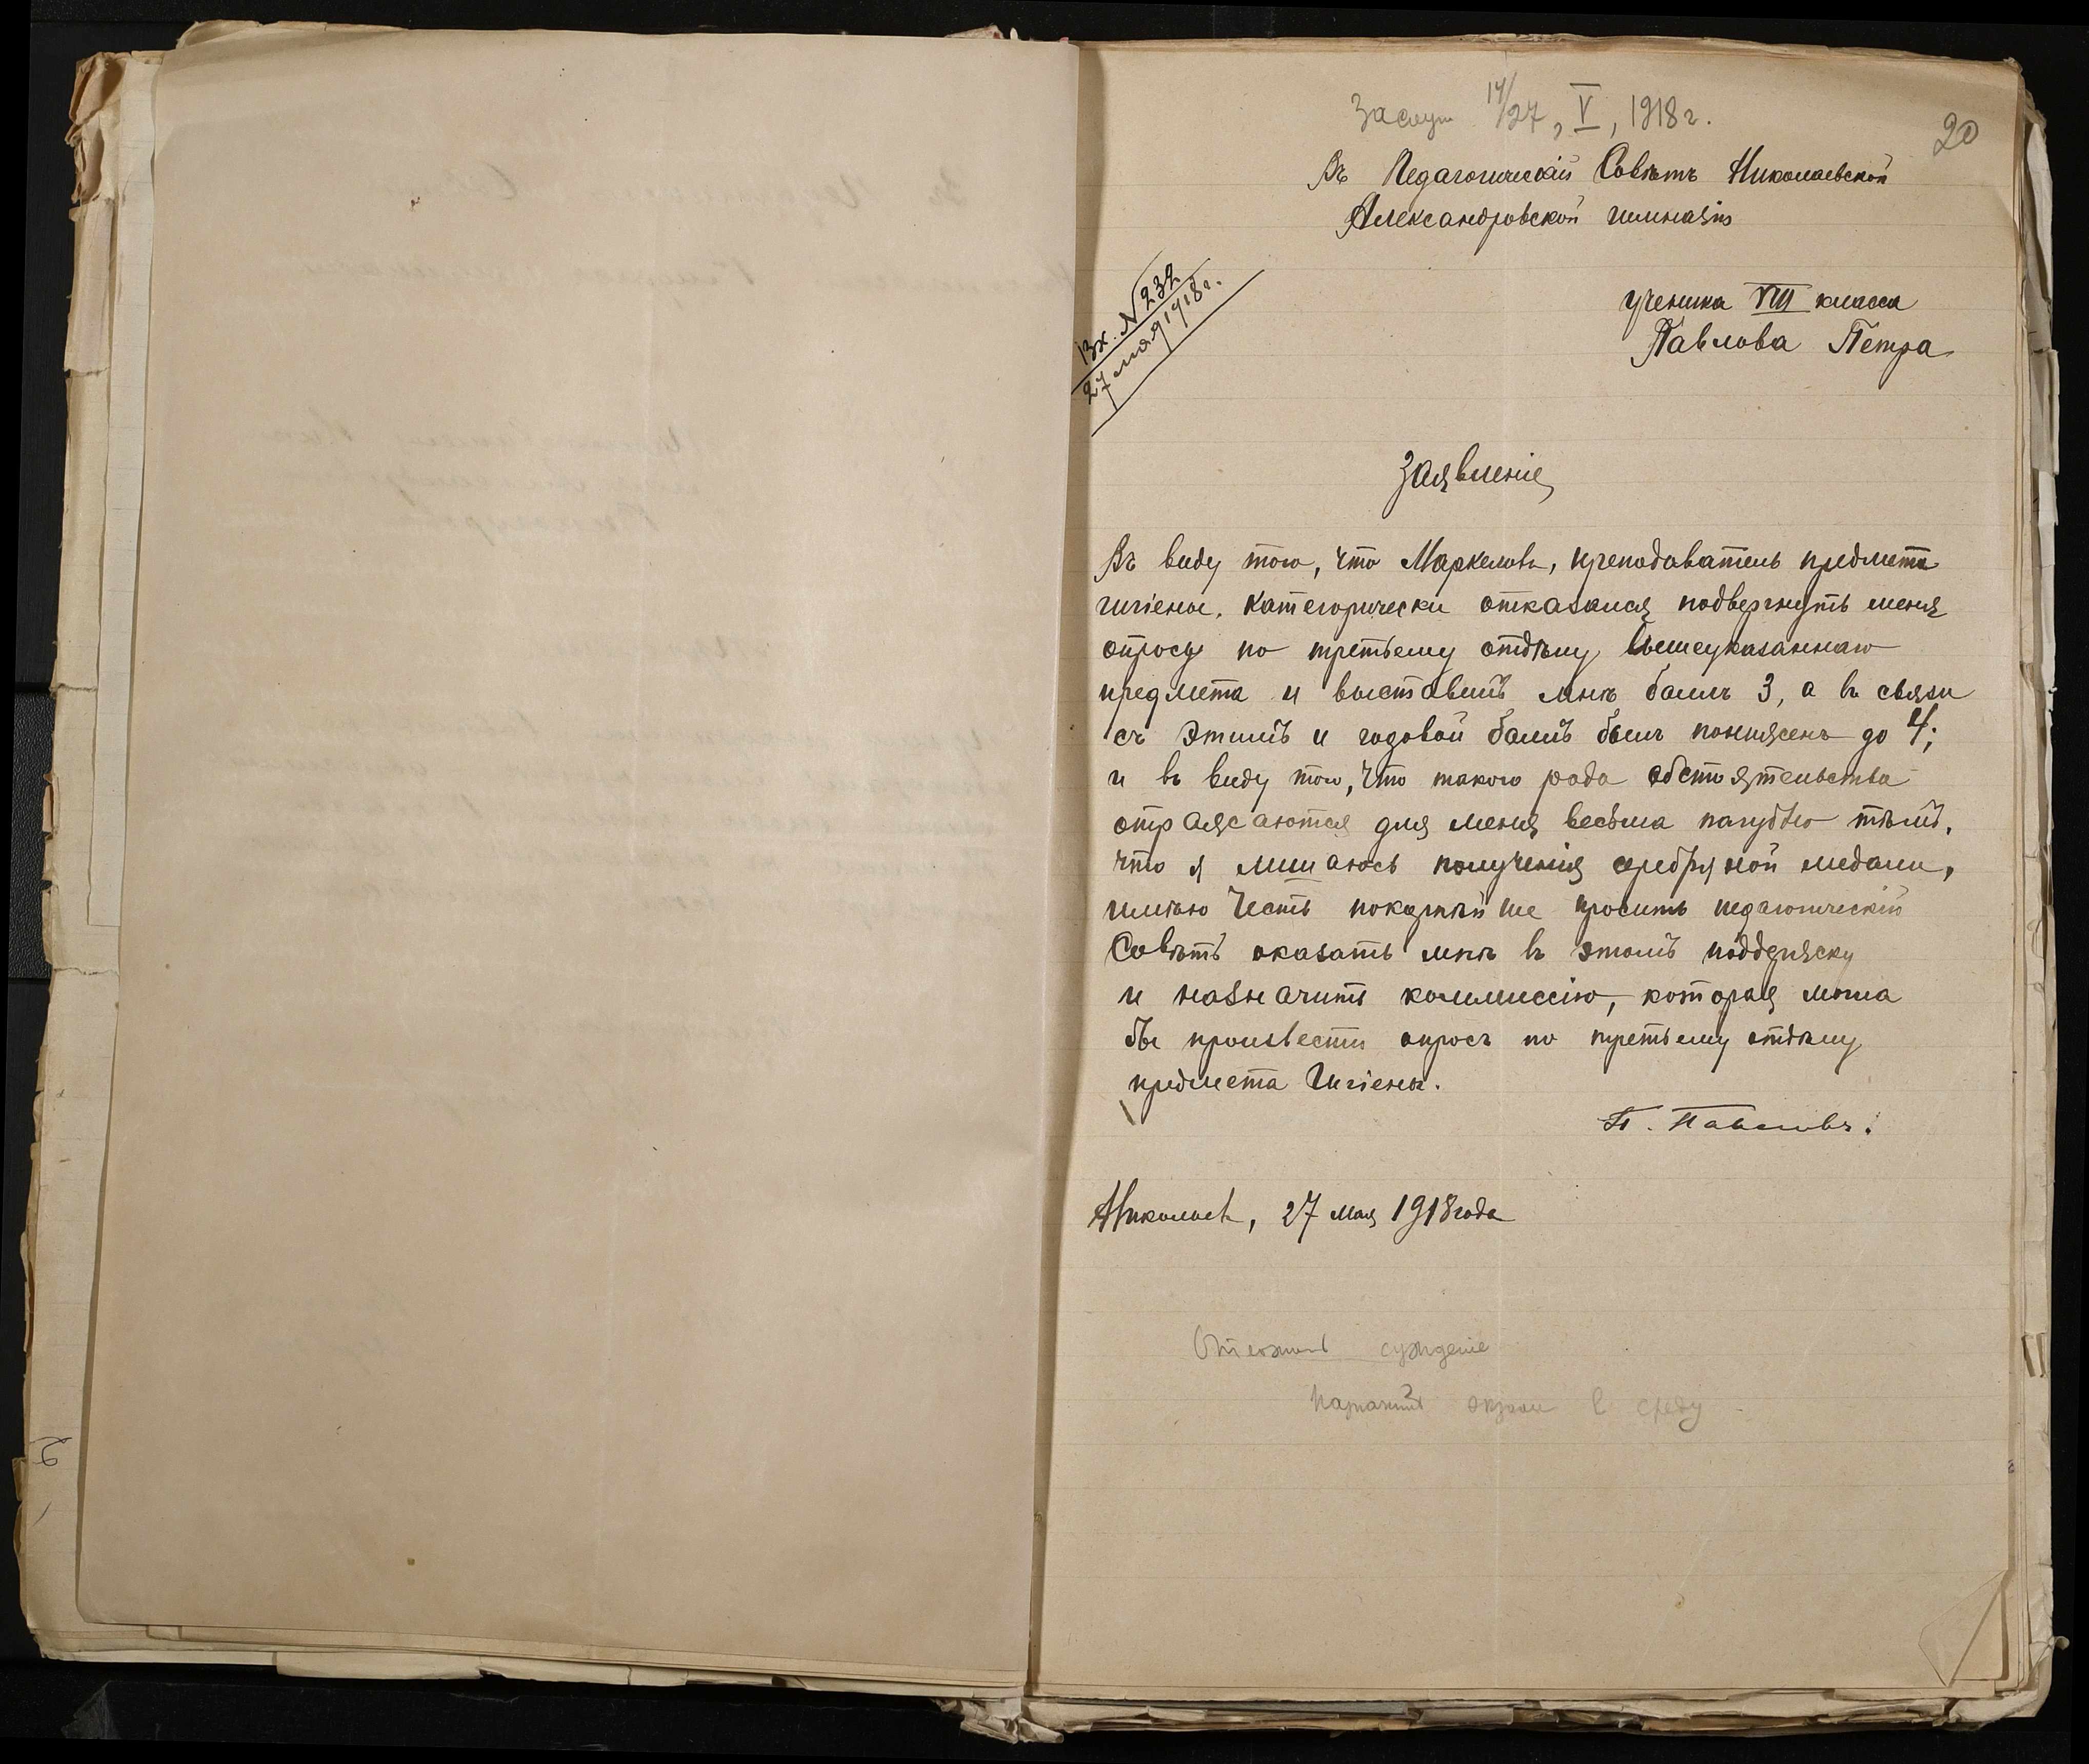 Заслуш. 14/27, V, 1918 г.
20
Въ Педагогическій Совѣтъ Николаевской
Александровской гимназіи
Вх. N 232
27 мая 1918 г.
ученика VIII класса
Павлова Петра
Заявленіе
Въ виду того, что Маркеловъ, преподаватель предмета
гигіены, категорически отказался подвергнуть меня
опросу по третьему отдѣлу вышеуказаннаго
предмета и выставилъ мнѣ баллъ 3, а въ связи
съ этимъ и годовой баллъ былъ пониженъ до 4;
и въ виду того, что такого рода обстоятельства
отражаются для меня весьма пагубно тѣмъ,
что я лишаюсь полученія серебряной медали,
имѣю честь покорнѣйше просить педагогическій
Совѣтъ оказать мнѣ въ этомъ поддержку
и назначить коммиссію, которая могла
бы произвести опросъ по третьему отдѣлу
предмета Гигіены.
П. Павловъ.
Николаевъ, 27 мая 1918 года
Отложить сужденіе
в среду